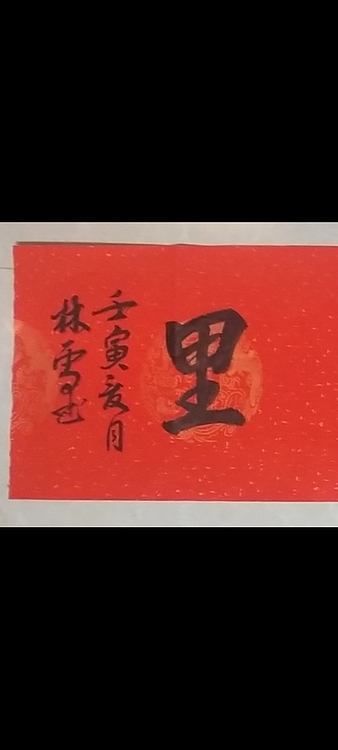 里
壬寅亥月
林雪书